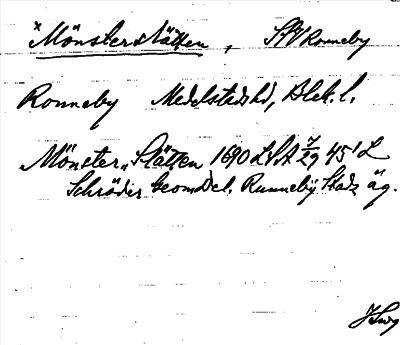 x Mönsterslätten, SV Ronneby
Ronneby Medelstads hd, Blek. l.
Mönster„Slätten 1690 LSA 7/29 45' L
Schröder Geom. Del. Runneby Stadz äg.